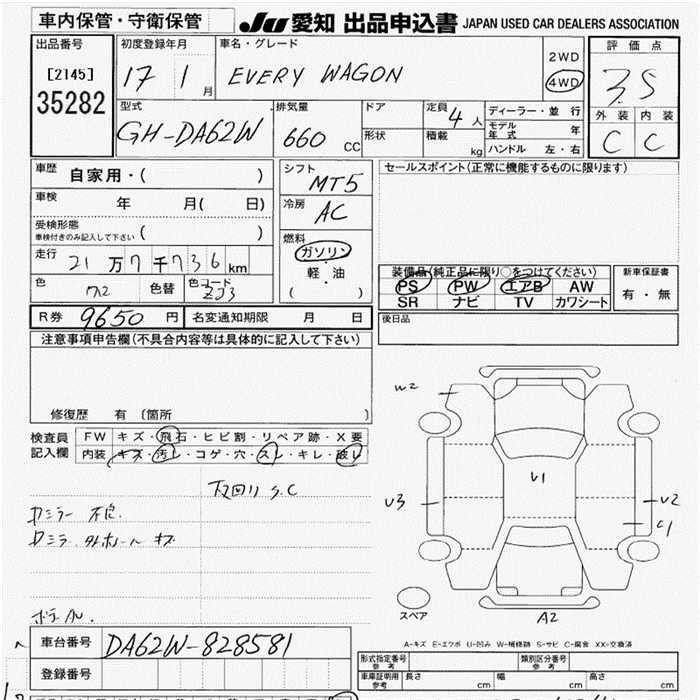 車内保管・守衛保管
JU 愛知 出品申込書 JAPAN USED CAR DEALERS ASSOCIATION
出品番号
[2145]
35282
初度登録年月
17 1 月
車名・グレード
EVERY WAGON
2WD
4WD
評価点
3.5
外装 内装
C C
型式
GH-DA62W
排気量
660 CC
ドア
形状
定員 4 人
積載 kg
ディーラー・並行
モデル年式 年
ハンドル 左・右
車歴
自家用・( )
車検 年 月( 日)
受検形態
車検付きのみ記入して下さい ( )
走行 21 万 7 千 736 km
色 色替 色コード
ZJ3
シフト
MT5
冷房
AC
燃料
ガソリン
軽・油
( )
セールスポイント(正常に機能するものに限ります)
装備品(純正品に限り○をつけてください)
PS PW エアB AW
SR ナビ TV カワシート
新車保証書
有・無
R券 9650 円 名変通知期限 月 日
後日品
注意事項申告欄(不具合内容等は具体的に記入して下さい)
修復歴 有 〔箇所 〕
検査員
記入欄
FW キズ・飛石・ヒビ割・リペア跡・X要
内装 キズ・汚レ・コゲ・穴・スレ・キレ・破レ
下回り S.C
W2
U1
U3
U2
C1
A2
スペア
A-キズ E-エクボ U-凹み W-補修跡 S-サビ C-腐食 XX-交換済
車台番号 DA62W-828581
登録番号
形式指定番号
参考
類別区分番号
参考
車庫証明用
参考
長さ cm 幅 cm 高さ cm